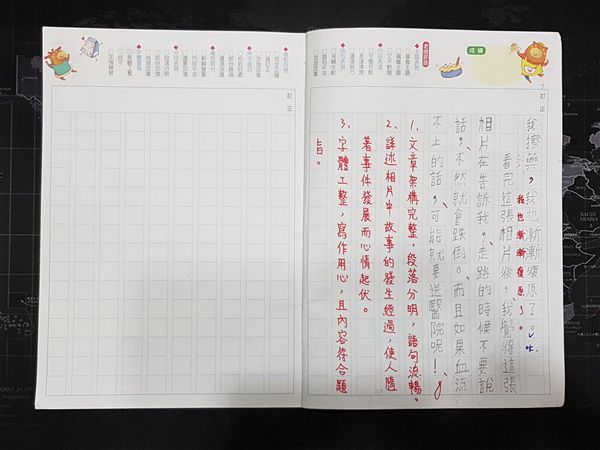 成績
訂正
我擦藥，我也漸漸復原了。
我也漸漸復原了。
看完這張相片後，我覺得這張
相片在告訴我，走路的時候不要說
話，不然就會跌倒。而且如果血流
不止的話，可能就要送醫院呢！
老師評語
1、文章架構完整，段落分明，語句流暢。
2、詳述相片中故事的發生經過，使人隨
著事件發展而心情起伏。
3、字體工整，寫作用心，且內容符合題
旨。
訂正